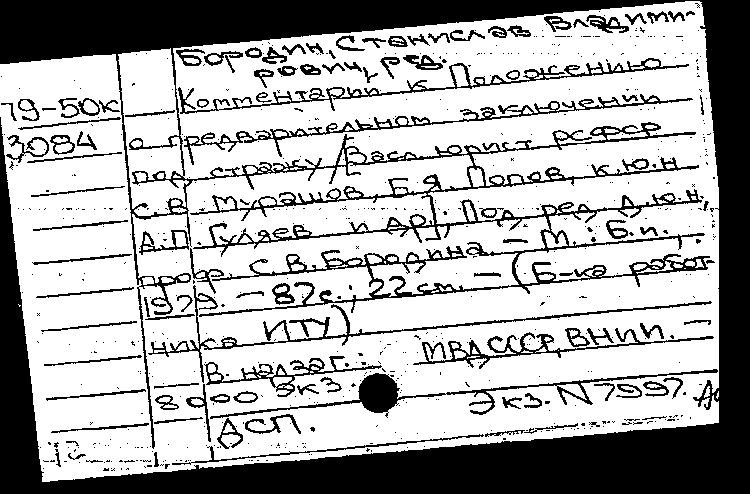 Бородин, Станислав Владими-
рович, ред.
79-50к Комментарий к Положению
3084 о предварительном заключении
под стражу / [Засл. юрист РСФСР
С. В. Мурашов, Б. Я. Попов, к.ю.н
А. П. Гуляев и др.]; Под ред. д.ю.н.,
проф. С. В. Бородина. — М. : Б.и.,
1979. — 87 с. ; 22 см. — (Б-ка работ-
ника ИТУ).
В надзаг. : МВД СССР, ВНИИ. —
8000 экз.
Экз. N 7997.
ДСП.
12